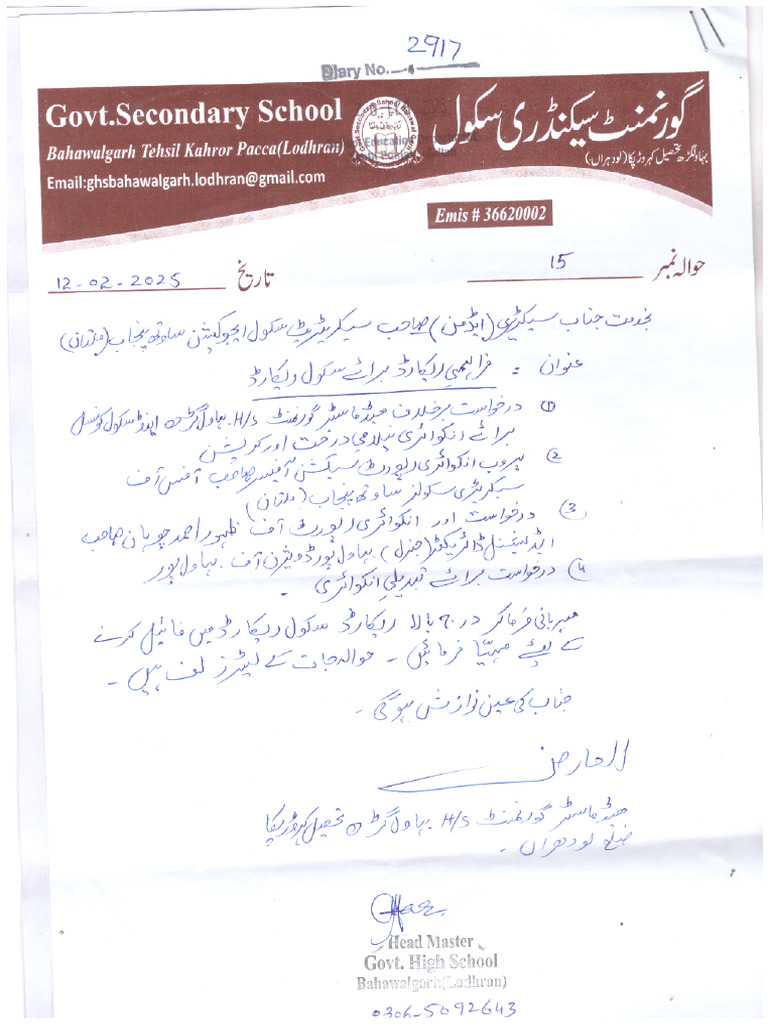 2917
Diary No.
Govt.Secondary School
گورنمنٹ سیکنڈری سکول
Bahawalgarh Tehsil Kahror Pacca(Lodhran)
بہاولگڑھ تحصیل کہروڑپکا(لودھراں)
Email:ghsbahawalgarh.lodhran@gmail.com
Emis # 36620002
حوالہ نمبر 15
تاریخ 12-02-2025
بخدمت جناب سیکٹری (ایڈمن) صاحب سیکریٹریٹ سکول ایجوکیشن ساوتھ پنجاب (ملتان)
عنوان : فراہمی ریکارڈ برائے سکول ریکارڈ
① درخواست برخلاف ہیڈماسٹر گورنمنٹ H/S بہاول گڑھ اینڈ سکول کونسل
برائے انکوائری نیلامی درخت اور کرپشن
② پروب انکوائری رپورٹ سیکشن آفیسر صاحب آفس آف
سیکریٹری سکولز ساوتھ پنجاب (ملتان)
③ درخواست اور انکوائری رپورٹ آف ظہور احمد چوہان صاحب
ایڈیشنل ڈائریکٹر (جنرل) بہاول پور ڈویژن آف بہاول پور
④ درخواست برائے تبدیلی انکوائری
مہربانی فرما کر درج بالا ریکارڈ سکول ریکارڈ میں فائیل کرنے
کے لیئے مہیّا فرمائیں - حوالہ جات کے لیٹرز لف ہیں -
جناب کی عین نوازش ہوگی -
العارض
ہیڈماسٹر گورنمنٹ H/S بہاول گڑھ تحصیل کہروڑپکا
ضلع لودھراں -
Head Master
Govt. High School
Bahawalgarh(Lodhran)
0306-5092643